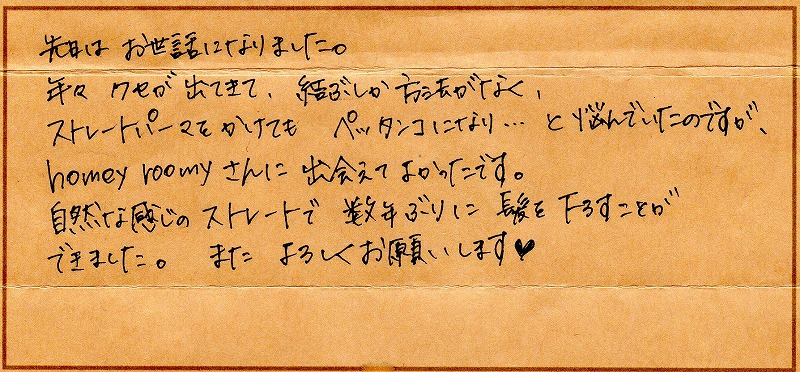 先日は お世話になりました。
年々 クセが 出てきて、結ぶしか 方法がなく、
ストレートパーマをかけても ペッタンコになり… と悩んでいたのですが、
homey roomy さんに 出会えて よかったです。
自然な感じの ストレートで 数年ぶりに 髪を 下ろすことが
できました。 また よろしくお願いします♥